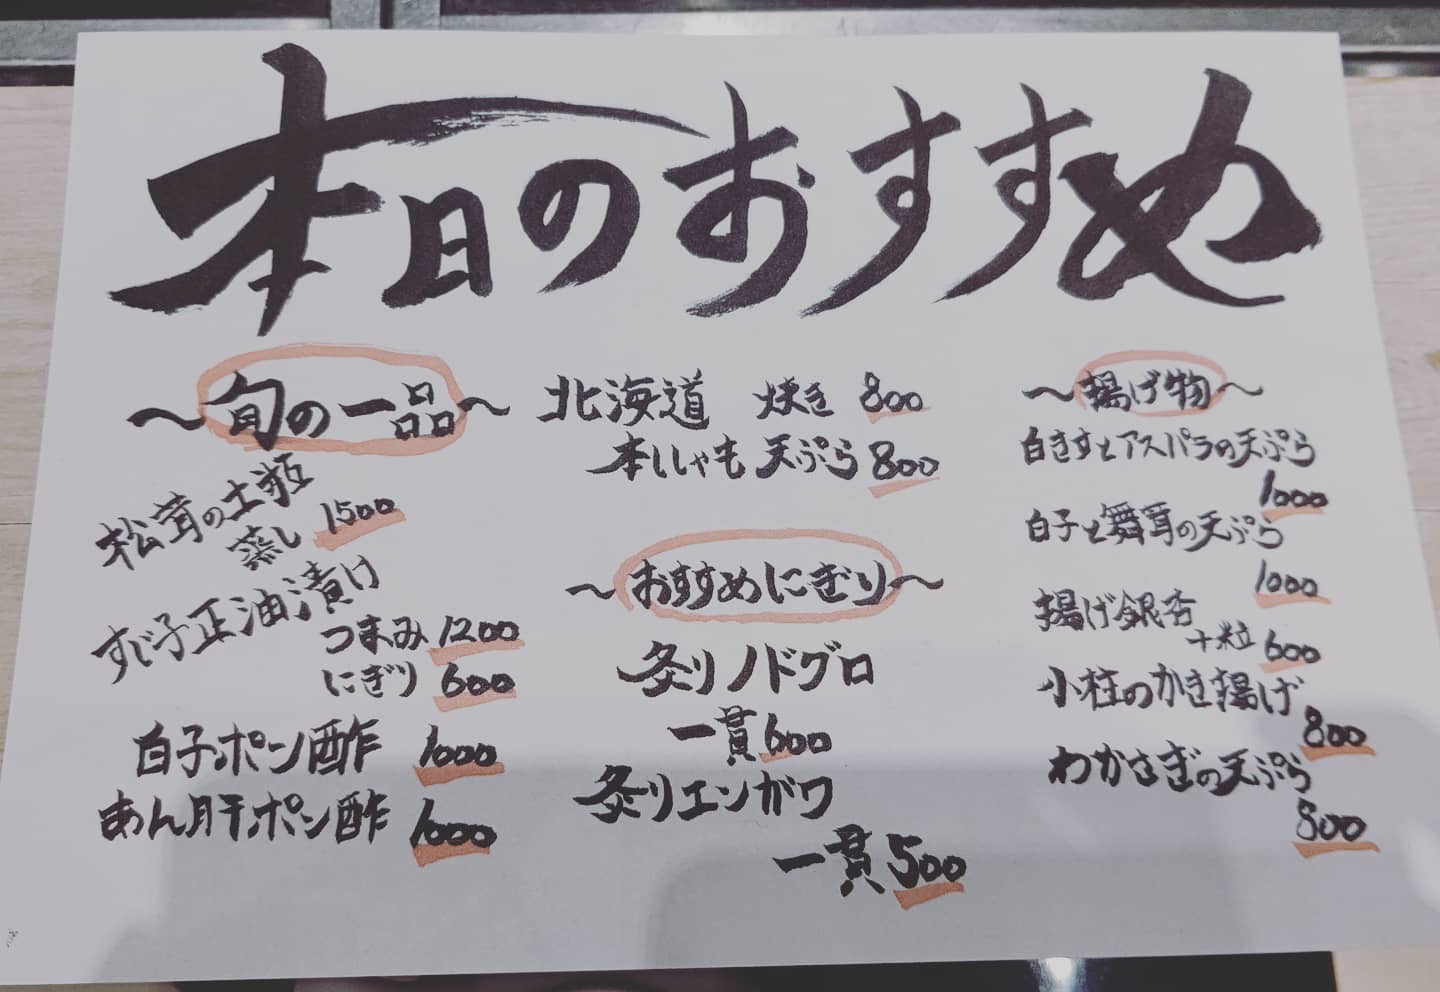 本日のおすすめ
〜旬の一品〜
松茸の土瓶
蒸し 1500
すじ子正油漬け
つまみ 1200
にぎり 600
白子ポン酢 1000
あん肝ポン酢 1000
北海道 焼き 800
本ししゃも 天ぷら 800
〜おすすめにぎり〜
炙りノドグロ
一貫 600
炙りエンガワ
一貫 500
〜揚げ物〜
白きすとアスパラの天ぷら
1000
白子と舞茸の天ぷら
1000
揚げ銀杏
十粒 600
小柱のかき揚げ
800
わかさぎの天ぷら
800